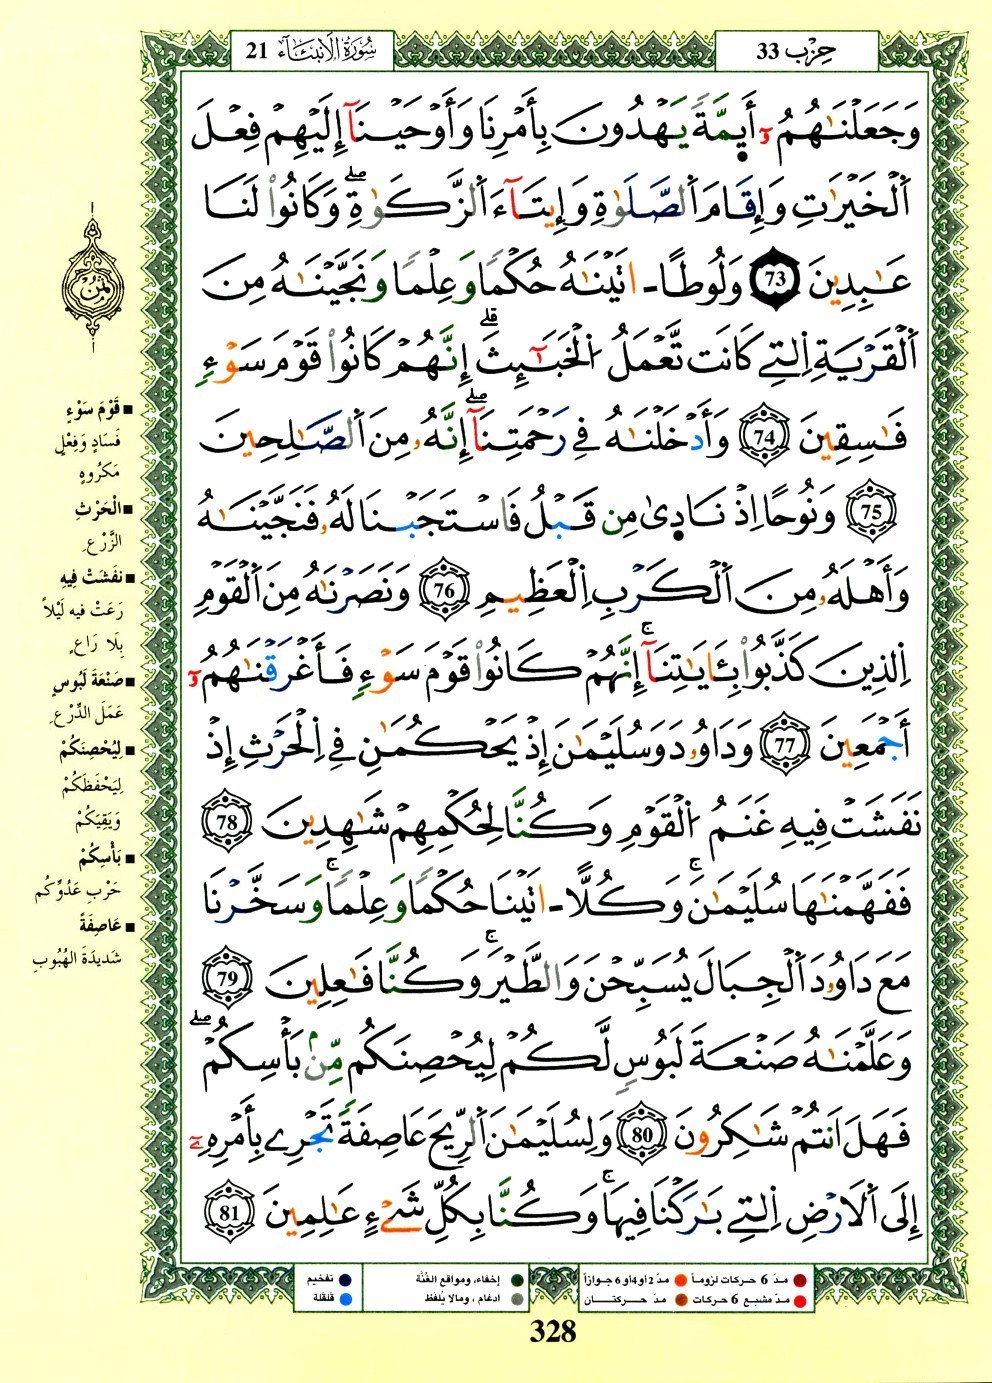 حِزْب 33
سُورَةُ الْأَنبِيَاءِ 21
وَجَعَلْنَٰهُمُۥٓ أَئِمَّةٗ يَهْدُونَ بِأَمْرِنَا وَأَوْحَيْنَآ إِلَيْهِمْ فِعْلَ
اَ۬لْخَيْرَٰتِ وَإِقَامَ اَ۬لصَّلَوٰةِ وَإِيتَآءَ اَ۬لزَّكَوٰةِۖ وَكَانُواْ لَنَا
عَٰبِدِينَ 73 وَلُوطاً اٰتَيْنَٰهُ حُكْماٗ وَعِلْماٗ وَنَجَّيْنَٰهُ مِنَ
اَ۬لْقَرْيَةِ اِ۬لتِے كَانَت تَّعْمَلُ اُ۬لْخَبَٰٓئِثَۖ إِنَّهُمْ كَانُواْ قَوْمَ سَوْءٖ
فَٰسِقِينَ 74 وَأَدْخَلْنَٰهُ فِے رَحْمَتِنَآۖ إِنَّهُۥ مِنَ اَ۬لصَّٰلِحِينَ
75 وَنُوحاً اِذْ نَادٜىٰ مِن قَبْلُ فَاسْتَجَبْنَا لَهُۥ فَنَجَّيْنَٰهُ
وَأَهْلَهُۥ مِنَ اَ۬لْكَرْبِ اِ۬لْعَظِيمِ 76 وَنَصَرْنَٰهُ مِنَ اَ۬لْقَوْمِ
اِ۬لذِينَ كَذَّبُواْ بِـَٔايَٰتِنَآۚ إِنَّهُمْ كَانُواْ قَوْمَ سَوْءٖ فَأَغْرَقْنَٰهُمُۥٓ
أَجْمَعِينَ 77 وَدَاوُۥدَ وَسُلَيْمَٰنَ إِذْ يَحْكُمَٰنِ فِے اِ۬لْحَرْثِ إِذْ
نَفَشَتْ فِيهِ غَنَمُ اُ۬لْقَوْمِ وَكُنَّا لِحُكْمِهِمْ شَٰهِدِينَ 78
فَفَهَّمْنَٰهَا سُلَيْمَٰنَۚ وَكُلّاً اٰتَيْنَا حُكْماٗ وَعِلْماٗۚ وَسَخَّرْنَا
مَعَ دَاوُۥدَ اَ۬لْجِبَالَ يُسَبِّحْنَ وَالطَّيْرَۚ وَكُنَّا فَٰعِلِينَ 79
وَعَلَّمْنَٰهُ صَنْعَةَ لَبُوسٖ لَّكُمْ لِيُحْصِنَكُم مِّنۢ بَأْسِكُمْۖ
فَهَلَ اَنتُمْ شَٰكِرُونَ 80 وَلِسُلَيْمَٰنَ اَ۬لرِّيحَ عَاصِفَةٗ تَجْرِے بِأَمْرِهِۦٓ
إِلَى اَ۬لَارْضِ اِ۬لتِے بَٰرَكْنَا فِيهَاۚ وَكُنَّا بِكُلِّ شَےْءٍ عَٰلِمِينَ 81
ثُمُن
■ قَوْمَ سَوْءٍ
فَسَادٍ وَفِعْلٍ
مَكْرُوهٍ
■ الْحَرْثِ
الزَّرْعِ
■ نَفَشَتْ فِيهِ
رَعَتْ فيه لَيْلاً
بِلَا رَاعٍ
■ صَنْعَةَ لَبُوسٍ
عَمَلَ الدِّرْعِ
■ لِيُحْصِنَكُمْ
لِيَحْفَظَكُمْ
وَيَقِيَكُمْ
■ بَأْسِكُمْ
حَرْبِ عَدُوِّكُم
■ عَاصِفَةً
شَدِيدَةَ الهُبُوبِ
مدّ 6 حركات لزوماً مدّ 2 أو 4 أو 6 جوازاً
مدّ مشبع 6 حركات مدّ حركتان
إخفاء، ومواقع الغُنَّة
ادغام، ومالا يُلفظ
تفخيم
قلقلة
328